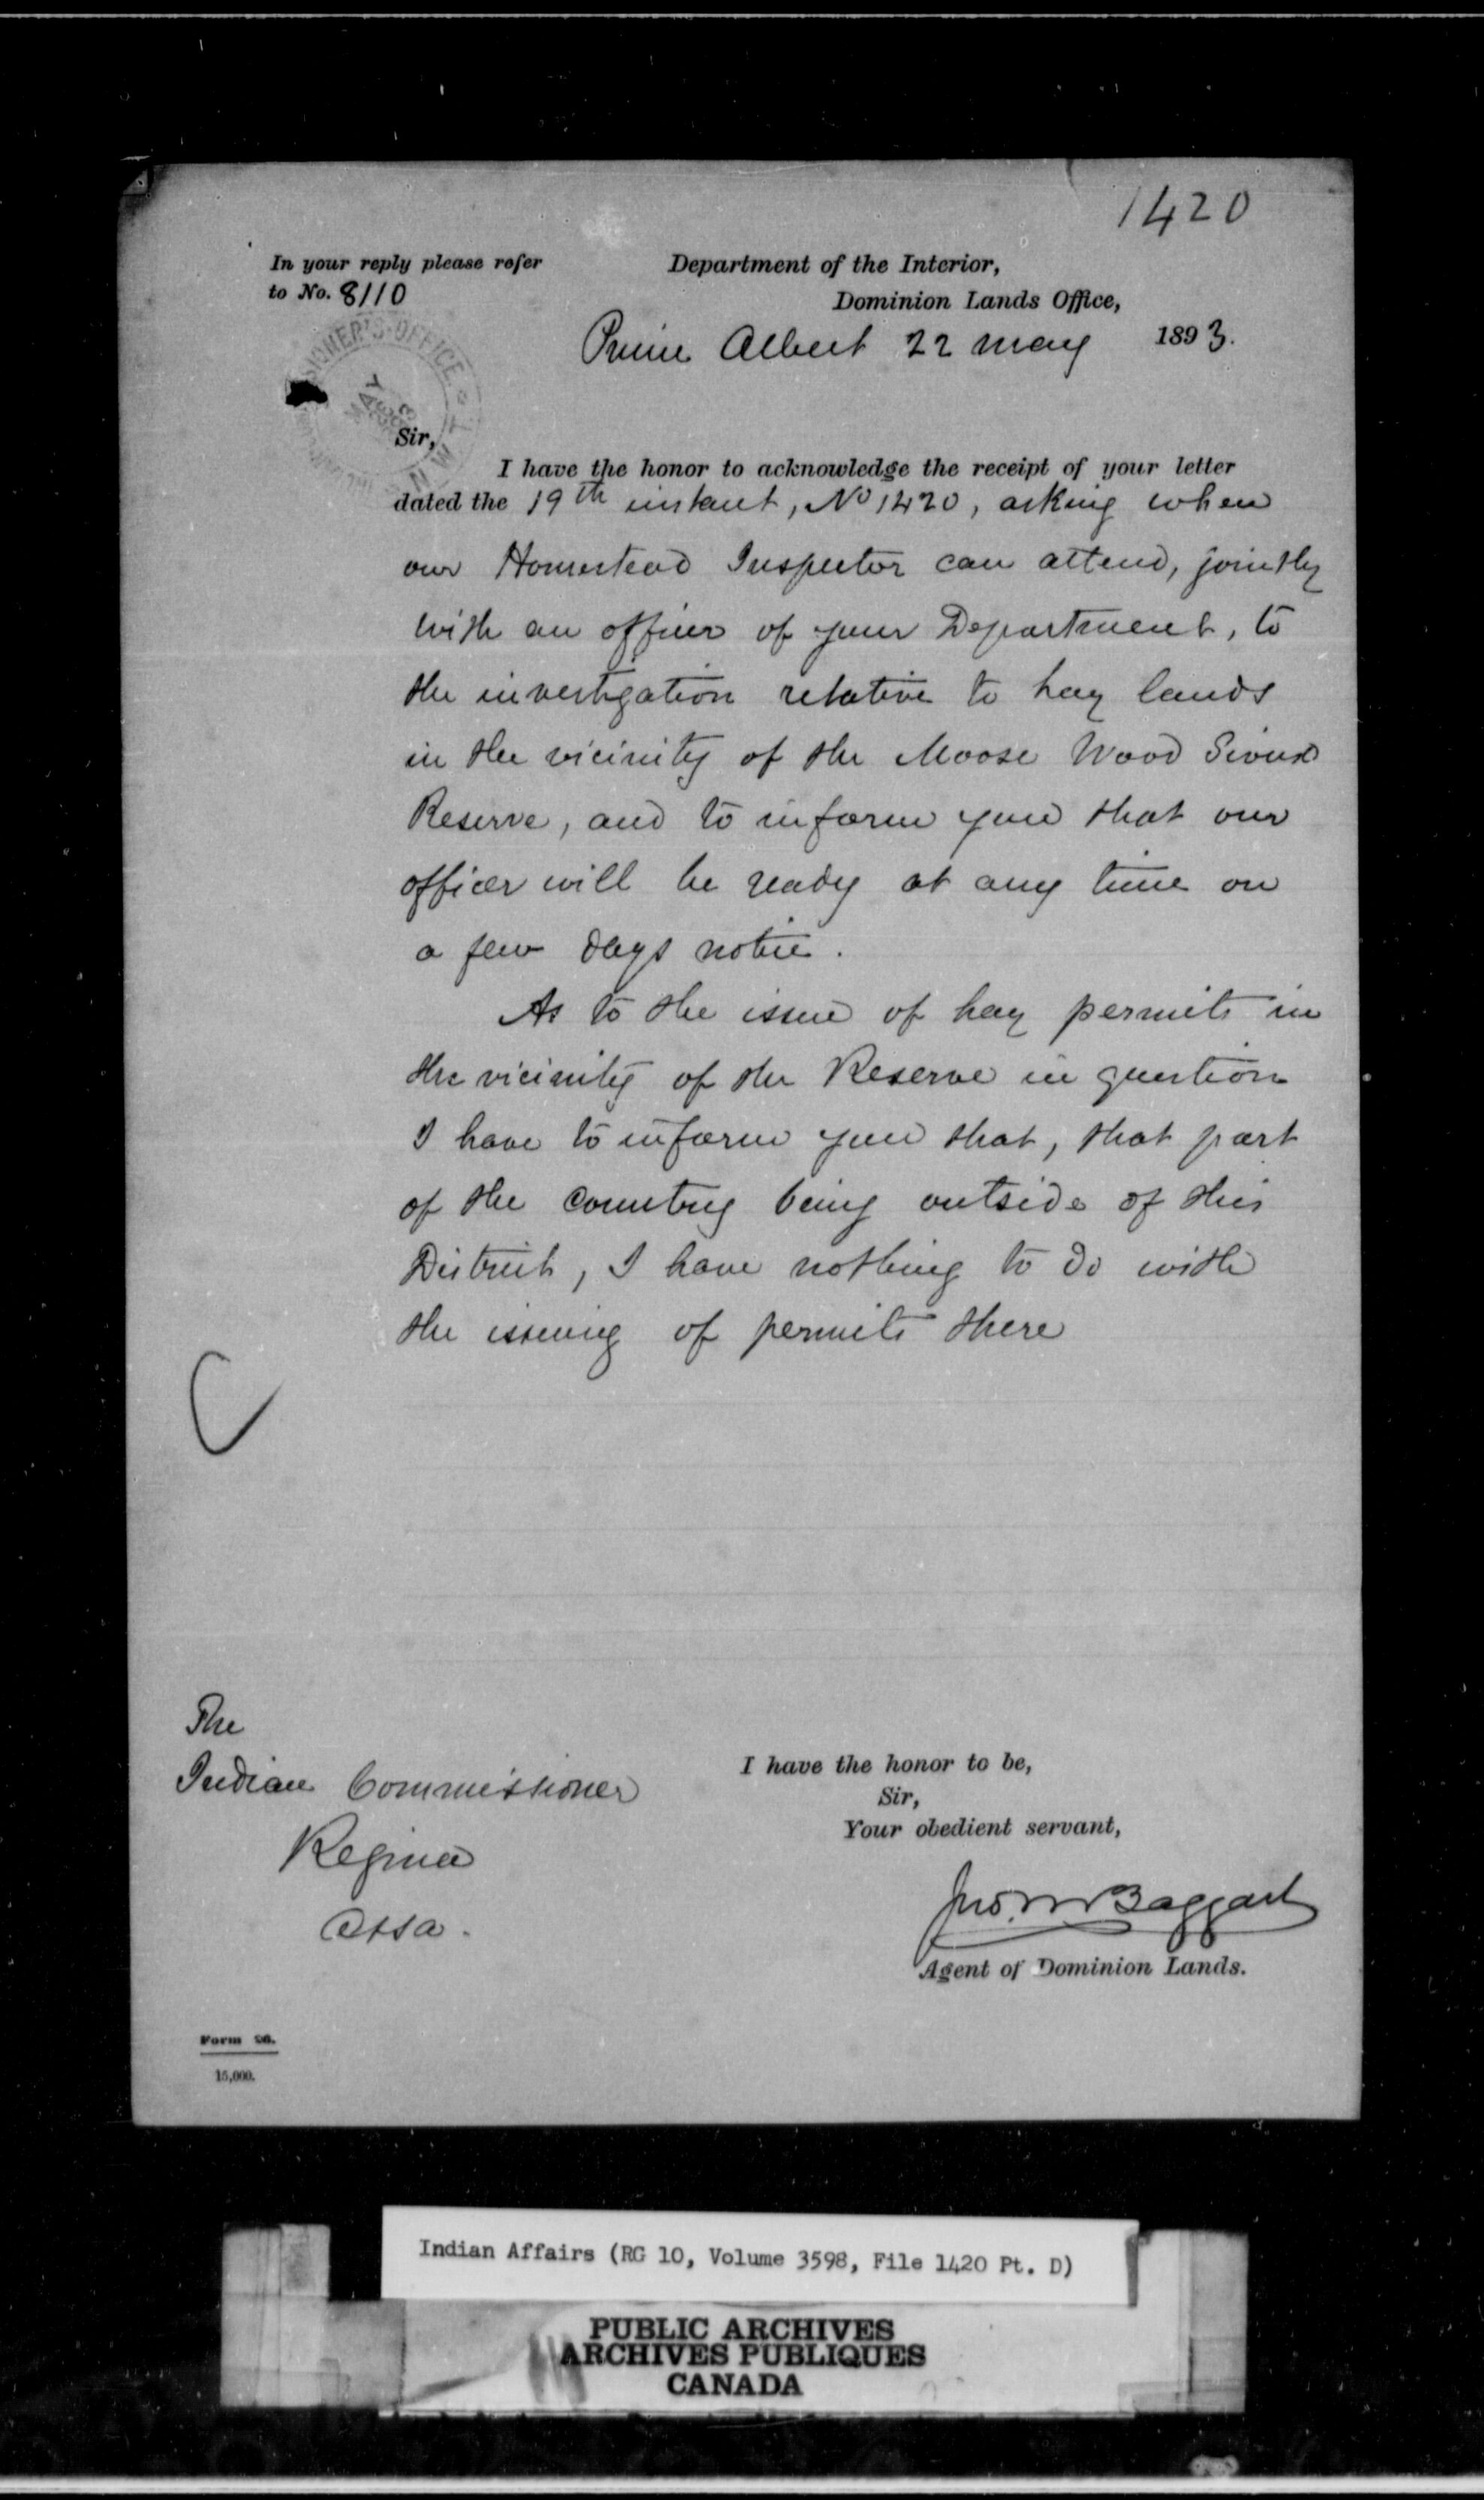 1420
In your reply please refer
to No. 8110
Department of the Interior,
Dominion Lands Office,
Prince Albert 22 May 1893.
Sir,
I have the honor to acknowledge the receipt of your letter
dated the 19th instant, No 1420, asking when
our Homestead Inspector can attend, jointly
with an officer of your Department, to
the investigation relative to hay lands
in the vicinity of the Moose Wood Sioux
Reserve, and to inform you that our
officer will be ready at any time on
a few days notice.
As to the issue of hay permits in
the vicinity of the Reserve in question
I have to inform you that, that part
of the Country being outside of this
District, I have nothing to do with
the issuing of permits there
The
Indian Commissioner
Regina
Assa.
I have the honor to be,
Sir,
Your obedient servant,
Jno. Baggart
Agent of Dominion Lands.
Form 26.
15,000.
Indian Affairs (RG 10, Volume 3598, File 1420 Pt. D)
PUBLIC ARCHIVES
ARCHIVES PUBLIQUES
CANADA